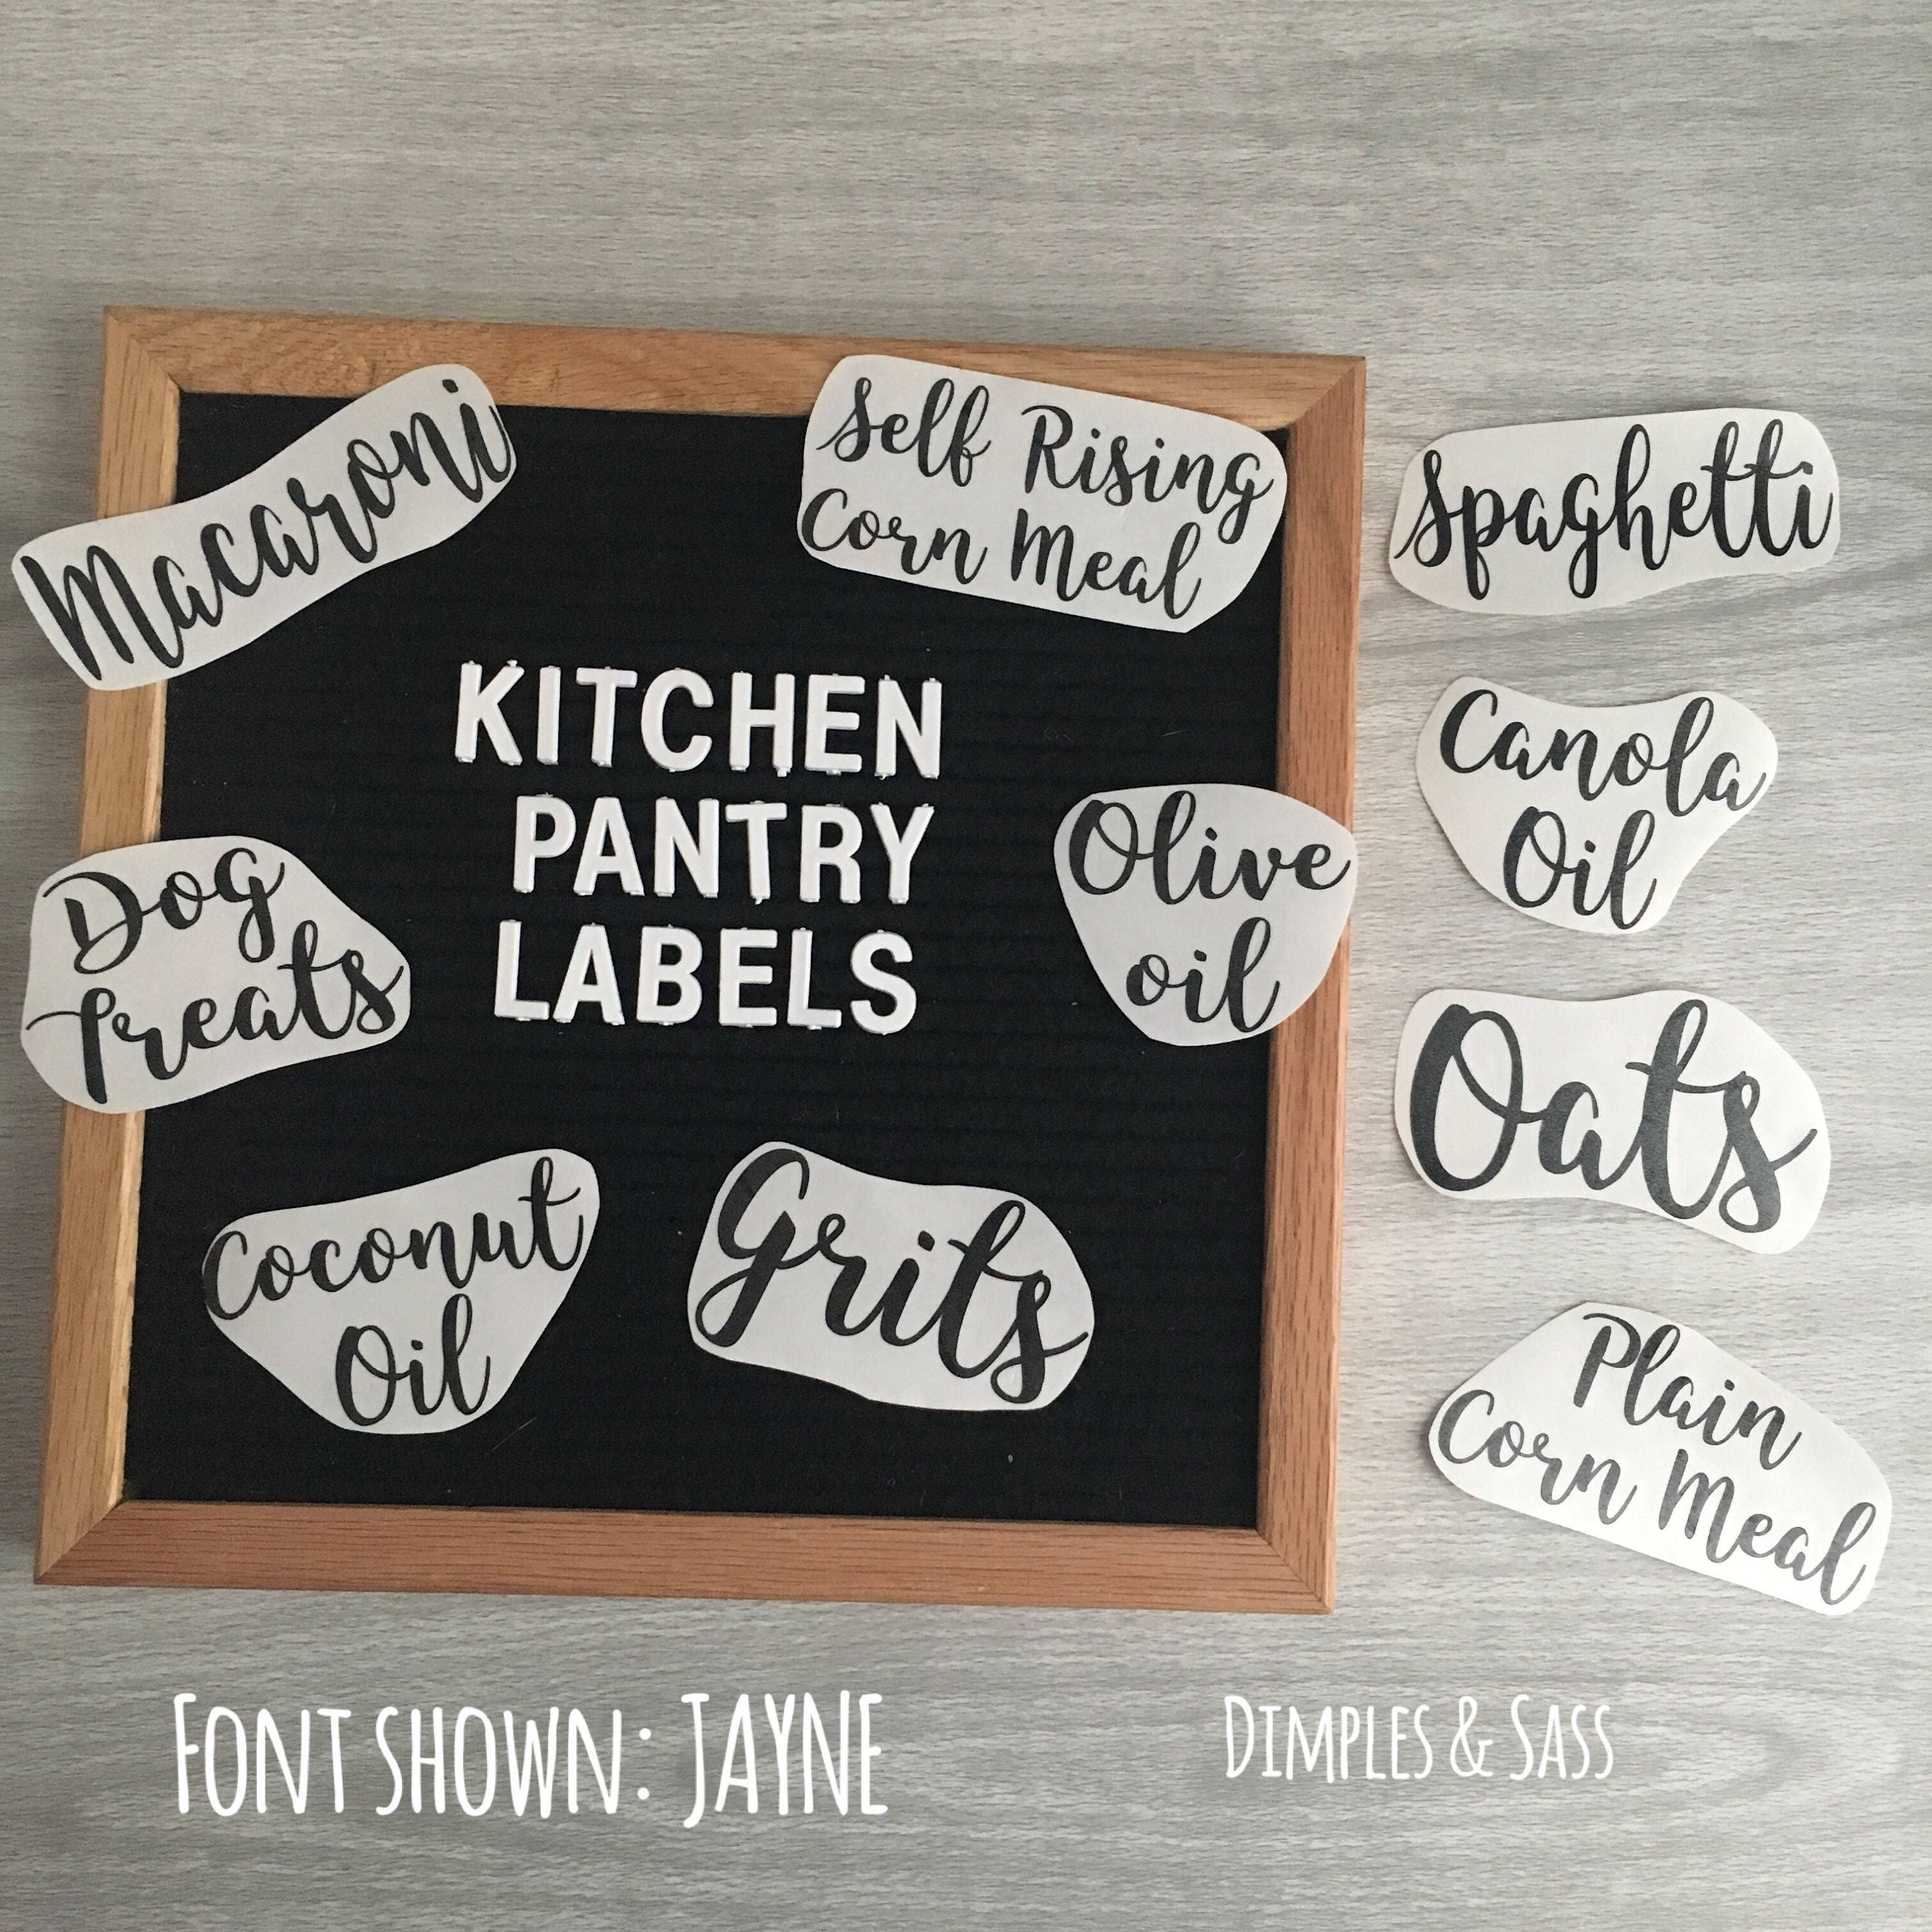 Macaroni
Self Rising
Corn Meal
Spaghetti
KITCHEN
PANTRY
LABELS
Canola
Oil
Olive
oil
Dog
Treats
Oats
Coconut
Oil
Grits
Plain
Corn Meal
FONT SHOWN: JAYNE
DIMPLES & SASS